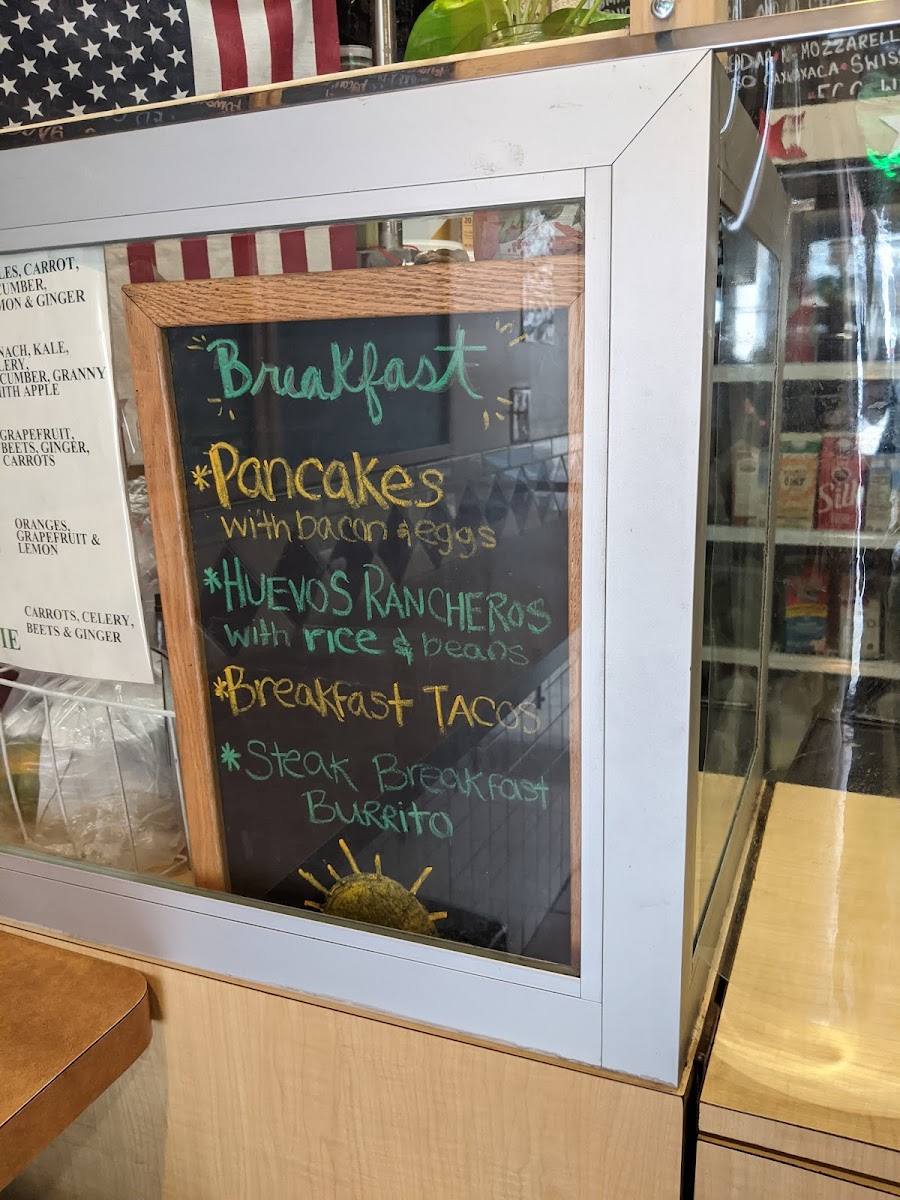 Breakfast
*Pancakes
with bacon & eggs
*HUEVOS RANCHEROS
with rice & beans
*Breakfast TACOS
*Steak Breakfast
Burrito
LES, CARROT,
CUMBER,
MON & GINGER
NACH, KALE,
LERY,
CUMBER, GRANNY
ITH APPLE
GRAPEFRUIT,
BEETS, GINGER,
CARROTS
ORANGES,
GRAPEFRUIT &
LEMON
CARROTS, CELERY,
BEETS & GINGER
IE
MOZZARELL
SWISS
Silk